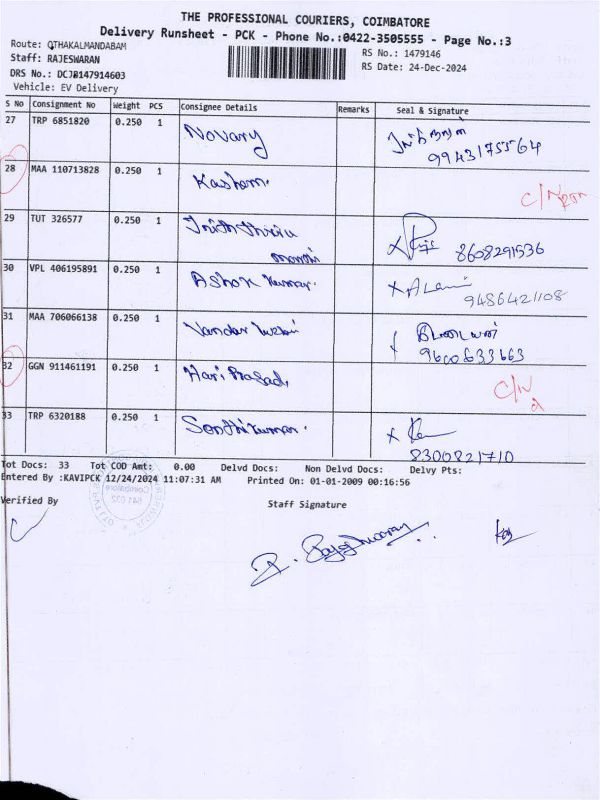 THE PROFESSIONAL COURIERS, COIMBATORE
Delivery Runsheet - PCK - Phone No.:0422-3505555 - Page No.:3
Route: OTHAKALMANDABAM
RS No.: 1479146
Staff: RAJESWARAN
RS Date: 24-Dec-2024
DRS No.: DCJB147914603
Vehicle: EV Delivery
S No Consignment No Weight PCS Consignee Details Remarks Seal & Signature
27 TRP 6851820 0.250 1 Novary
9943175564
28 MAA 110713828 0.250 1 C/N
29 TUT 326577 0.250 1
8608291536
30 VPL 406195891 0.250 1 Ashok Kumar.
9486421108
31 MAA 706066138 0.250 1
9600633663
32 GGN 911461191 0.250 1 Hari Prasad. C/N
33 TRP 6320188 0.250 1 Senthil Kumar.
8300821710
Tot Docs: 33 Tot COD Amt: 0.00 Delvd Docs: Non Delvd Docs: Delvy Pts:
Entered By :KAVIPCK 12/24/2024 11:07:31 AM Printed On: 01-01-2009 00:16:56
Verified By
Staff Signature